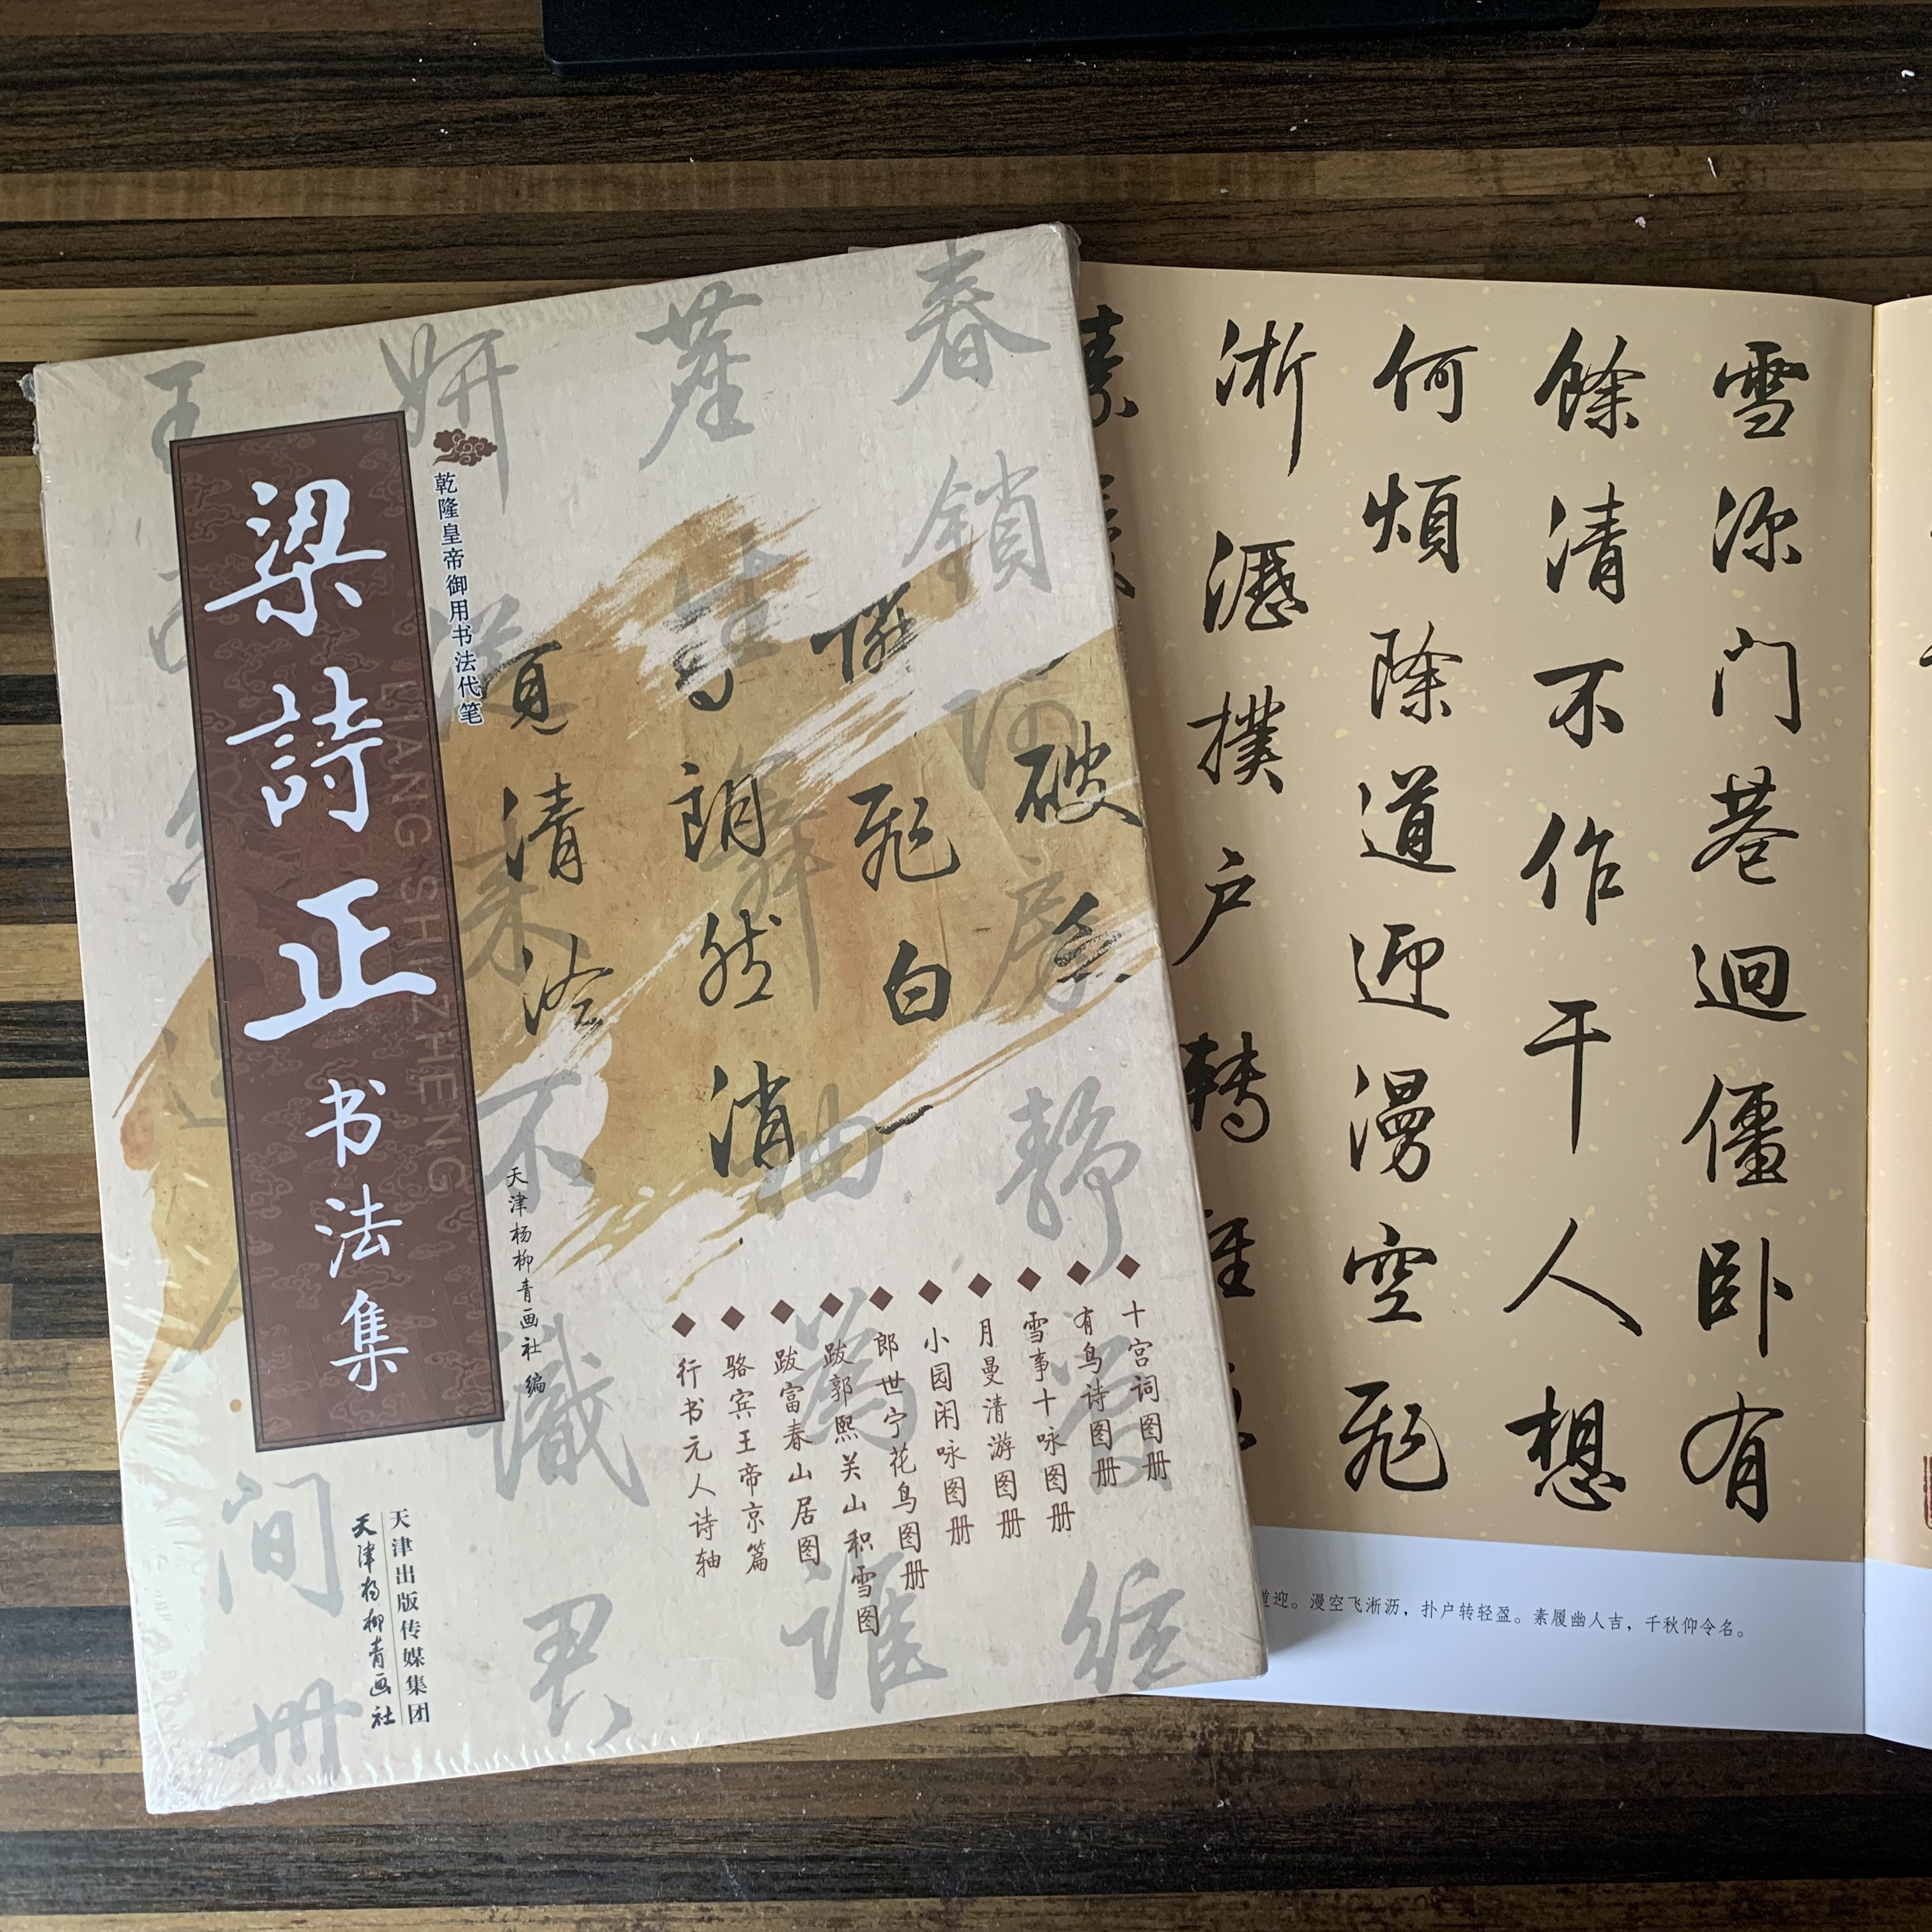 梁詩正书法集
LIANG SHI ZHENG
乾隆皇帝御用书法代笔
天津杨柳青画社 编
十宫词图册
有鸟诗图册
雪事十咏图册
月曼清游图册
小园闲咏图册
郎世宁花鸟图册
跋郭熙关山积雪图
跋富春山居图
骆宾王帝京篇
行书元人诗轴
天津出版传媒集团
天津杨柳青画社
破
飛白
朗然消
清
春鎖
靜
不
誰
間
君
雪深门巷迥僵卧有
餘清不作干人想
何煩除道迎漫空飛
淅瀝撲户轉軽
素
道迎。漫空飞淅沥，扑户转轻盈。素履幽人吉，千秋仰令名。